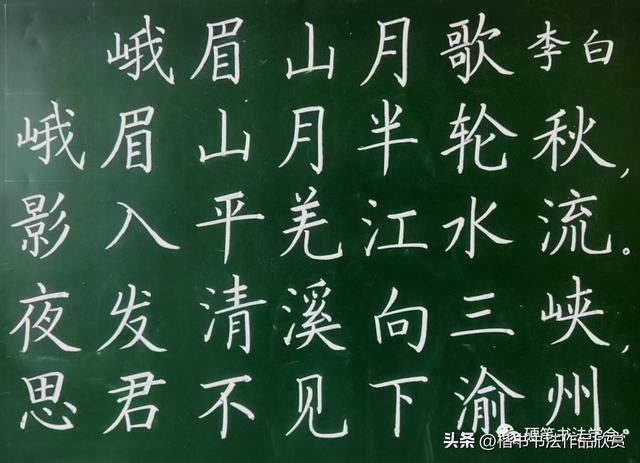 峨眉山月歌 李白
峨眉山月半轮秋,
影入平羌江水流。
夜发清溪向三峡,
思君不见下渝州。
硬笔书法学会
头条 @楷书书法作品欣赏